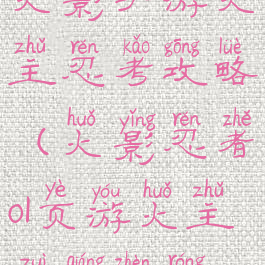 火影 游火
zhǔ rěn kǎo gōng lüè
主忍考攻略
huǒ yǐng rěn zhě
(火影忍者
yè yóu huǒ zhǔ
ol页游火主
zuì qiáng zhèn róng